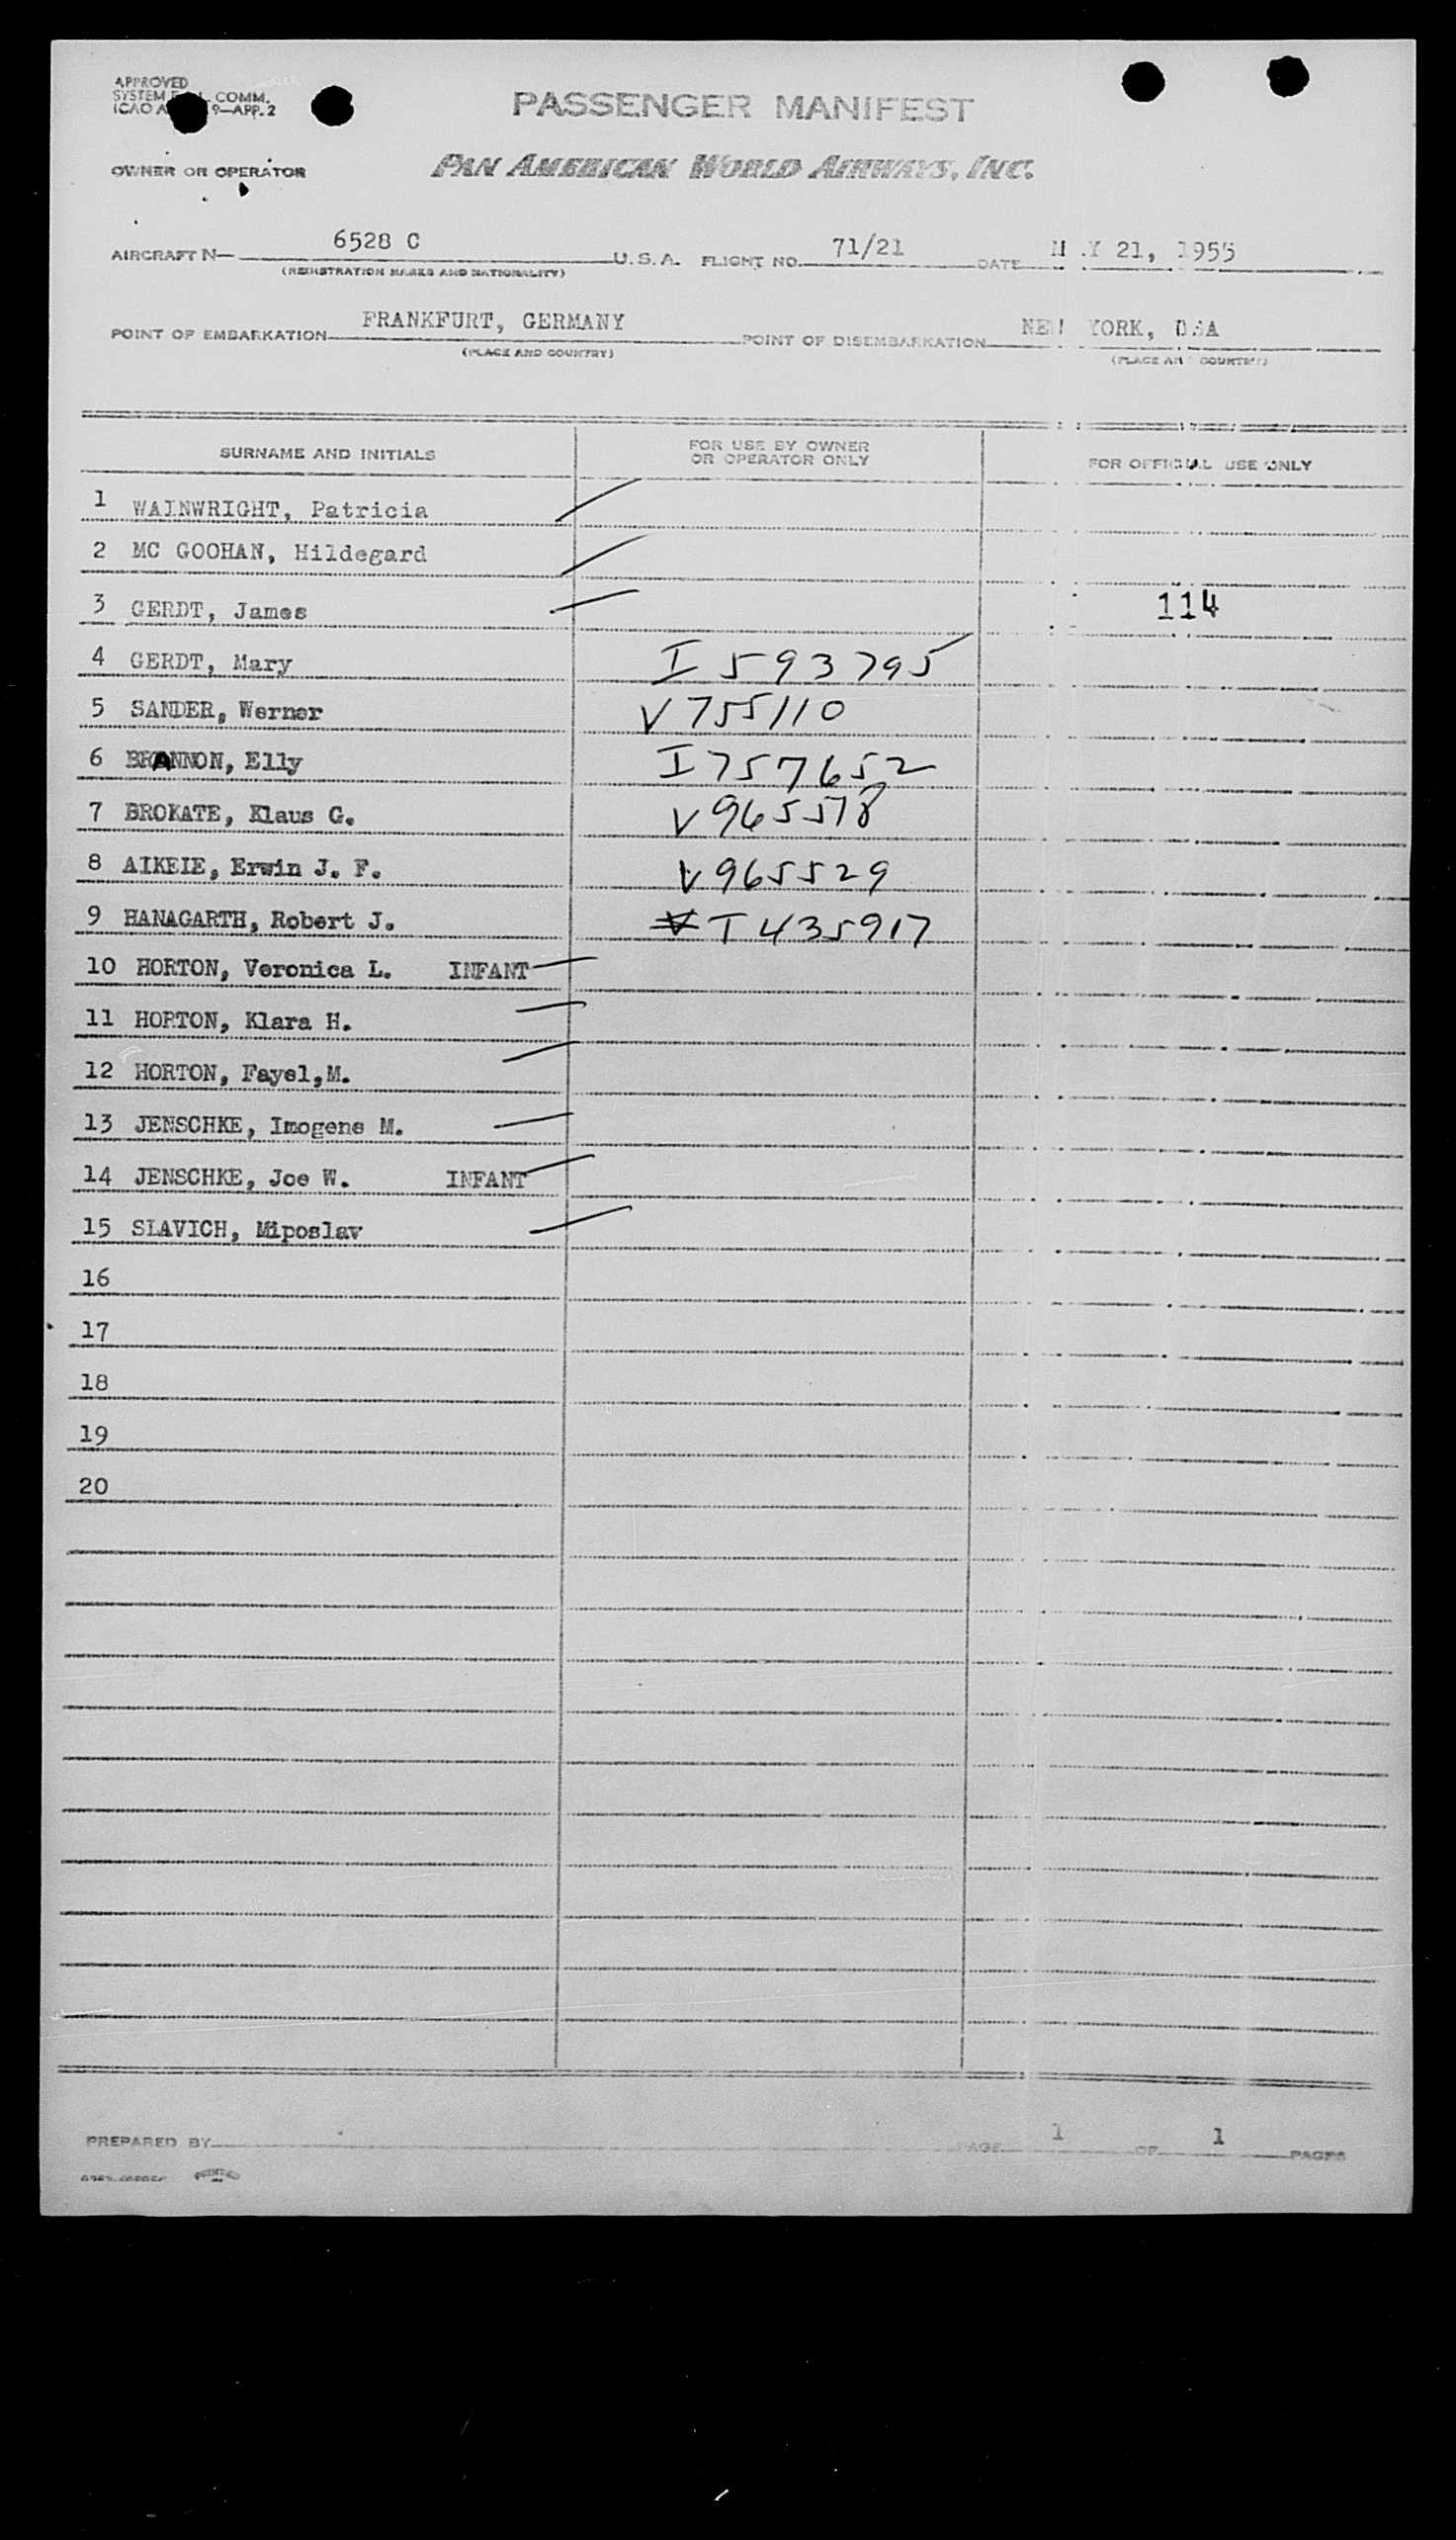 APPROVED
SYSTEM COMM.
ICAO 9—APP. 2
PASSENGER MANIFEST
OWNER OR OPERATOR
PAN AMERICAN WORLD AIRWAYS, INC.
AIRCRAFT N— 6528 C U.S.A. FLIGHT NO. 71/21 DATE M Y 21, 1955
(REGISTRATION MARKS AND NATIONALITY)
POINT OF EMBARKATION FRANKFURT, GERMANY POINT OF DISEMBARKATION NEW YORK, USA
(PLACE AND COUNTRY) (PLACE AND COUNTRY)
SURNAME AND INITIALS FOR USE BY OWNER OR OPERATOR ONLY FOR OFFICIAL USE ONLY
1 WAINWRIGHT, Patricia
2 MC GOOHAN, Hildegard
3 GERDT, James 114
4 GERDT, Mary I 593795
5 SANDER, Werner V755110
6 BRANNON, Elly I757652
7 BROKATE, Klaus G. V965578
8 AIKEIE, Erwin J. F. V965529
9 HANAGARTH, Robert J. V T435917
10 HORTON, Veronica L. INFANT
11 HORTON, Klara H.
12 HORTON, Fayel,M.
13 JENSCHKE, Imogene M.
14 JENSCHKE, Joe W. INFANT
15 SLAVICH, Miposlav
16
17
18
19
20
PREPARED BY PAGE 1 OF 1 PAGES